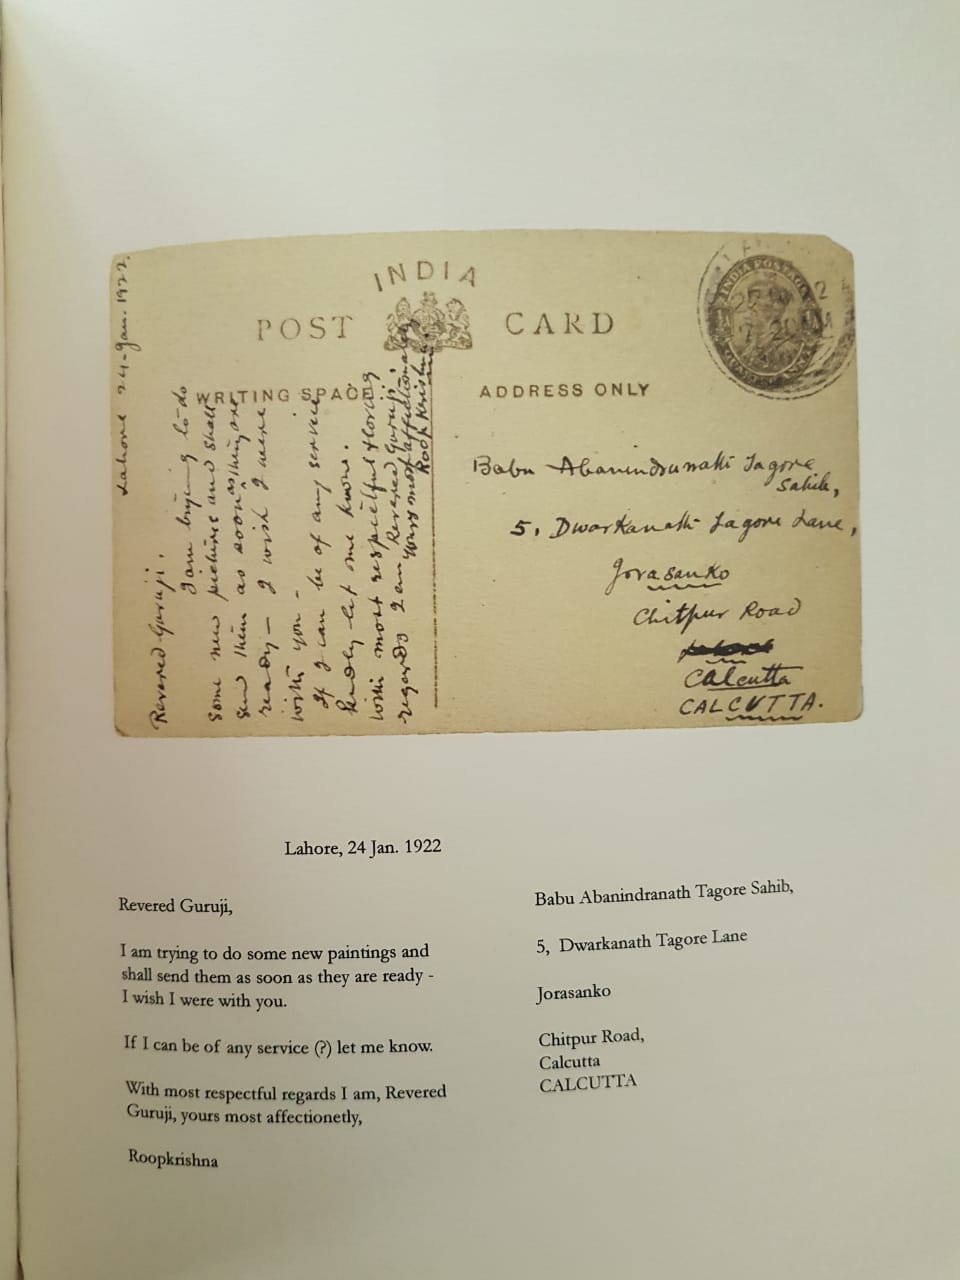 Lahore 24-Jan. 1922.
Revered Guruji,
I am trying to do
some new pictures and shall
send them as soon as they are
ready — I wish I were
with you —
If I can be of any service
kindly let me know.
With most respectful & loving
regards I am Revered Guruji,
yours most affectionately
Roop Krishna
INDIA
POST CARD
WRITING SPACE
ADDRESS ONLY
INDIA POSTAGE
Babu Abanindranath Tagore
Sahib,
5, Dwarkanath Tagore Lane,
Jorasanko
Chitpur Road
Calcutta
CALCUTTA.
Lahore, 24 Jan. 1922
Revered Guruji,
I am trying to do some new paintings and
shall send them as soon as they are ready -
I wish I were with you.
If I can be of any service (?) let me know.
With most respectful regards I am, Revered
Guruji, yours most affectionetly,
Roopkrishna
Babu Abanindranath Tagore Sahib,
5, Dwarkanath Tagore Lane
Jorasanko
Chitpur Road,
Calcutta
CALCUTTA